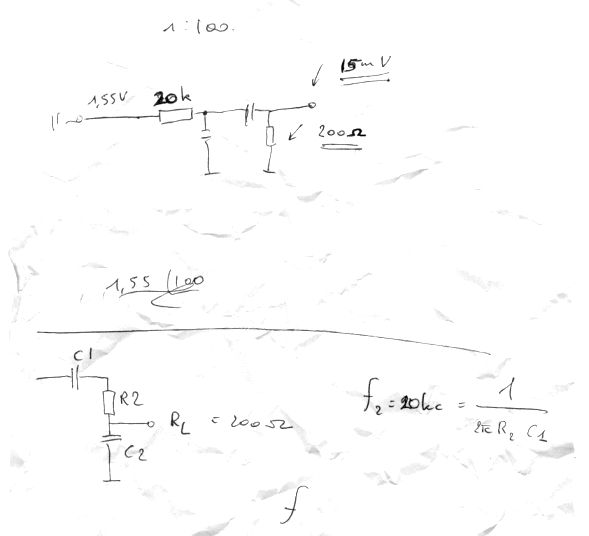 1:100.
15mV
1,55V
20k
200Ω
1,55/100
C1
R2
RL = 200Ω
C2
f2 = 20kc = 1
2π R2 C1
f